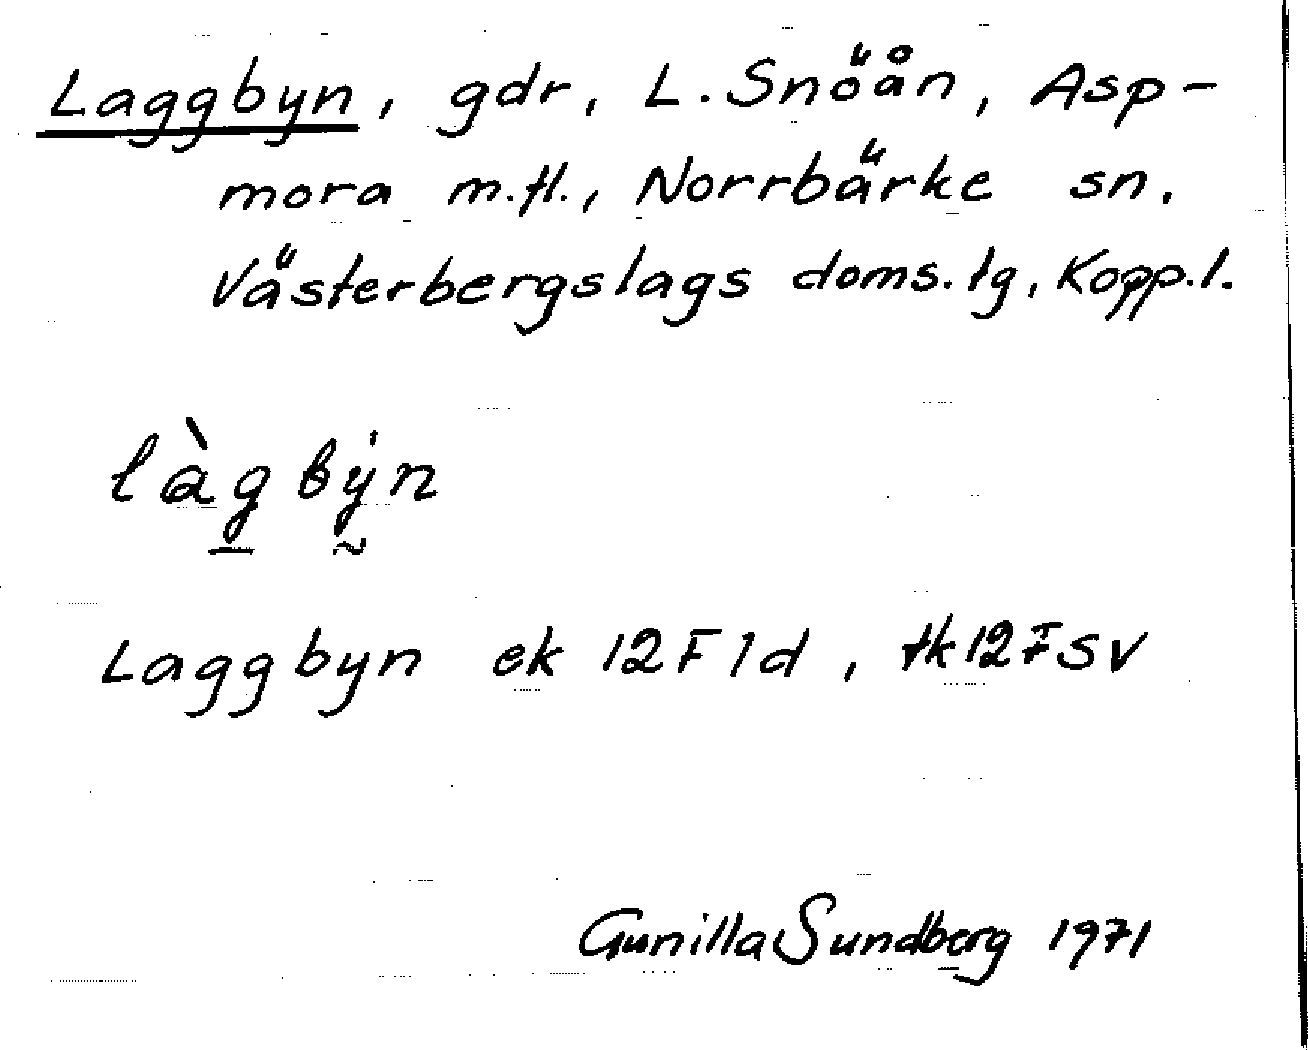 Laggbyn, gdr, L. Snöån, Asp-
mora m.fl., Norrbärke sn.
Västerbergslags doms. tg, Kopp. l.
làg̠bẏ̰n
Laggbyn ek 12F1d, tk12FSV
Gunilla Sundberg 1971